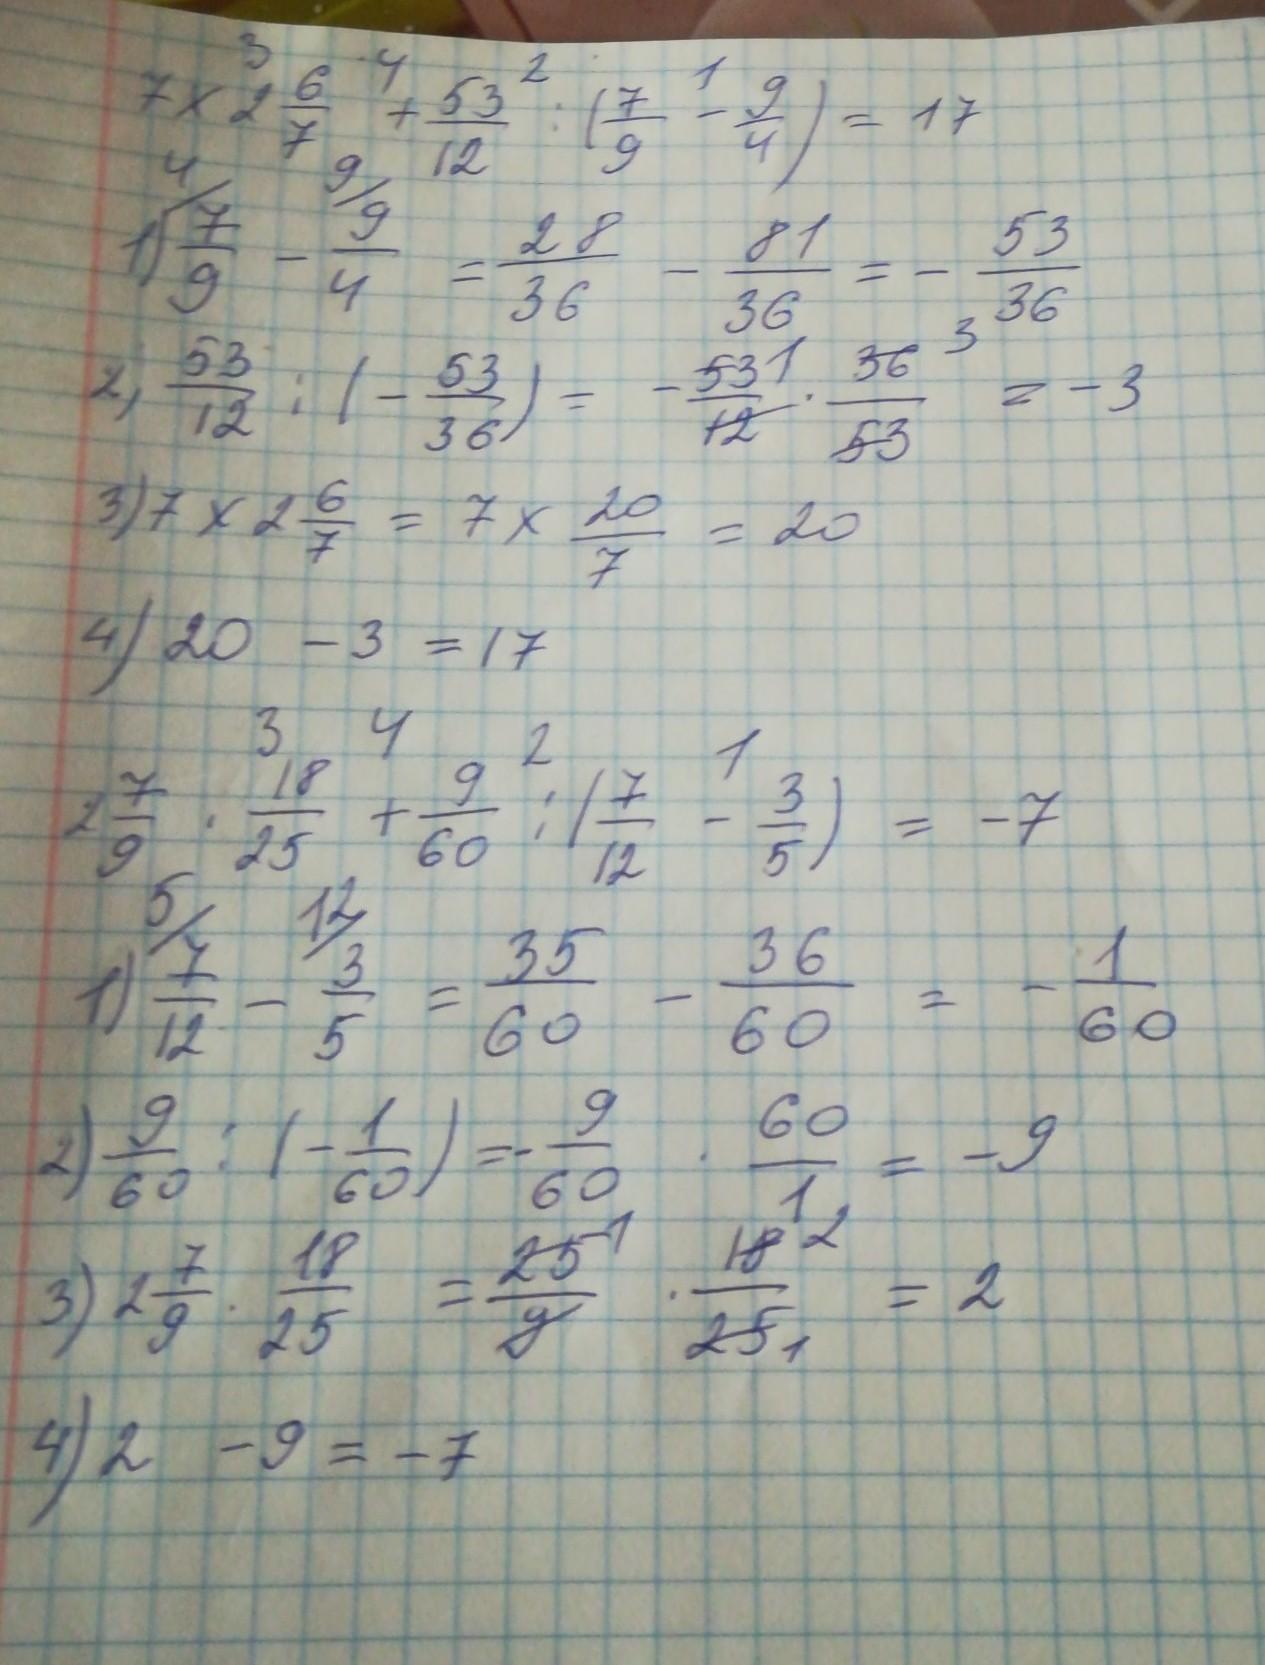 3 4 2 1
7 × 2 6/7 + 53/12 : (7/9 - 9/4) = 17
4/ 9/
1) 7/9 - 9/4 = 28/36 - 81/36 = - 53/36
2) 53/12 : (- 53/36) = - 53 1/12 · 36 3/53 = -3
3) 7 × 2 6/7 = 7 × 20/7 = 20
4) 20 - 3 = 17
3 4 2 1
2 7/9 · 18/25 + 9/60 : (7/12 - 3/5) = -7
5/ 12/
1) 7/12 - 3/5 = 35/60 - 36/60 = - 1/60
2) 9/60 : (- 1/60) = - 9/60 · 60/1 = -9
3) 2 7/9 · 18/25 = 25 1/9 · 18 2/25 1 = 2
4) 2 - 9 = -7